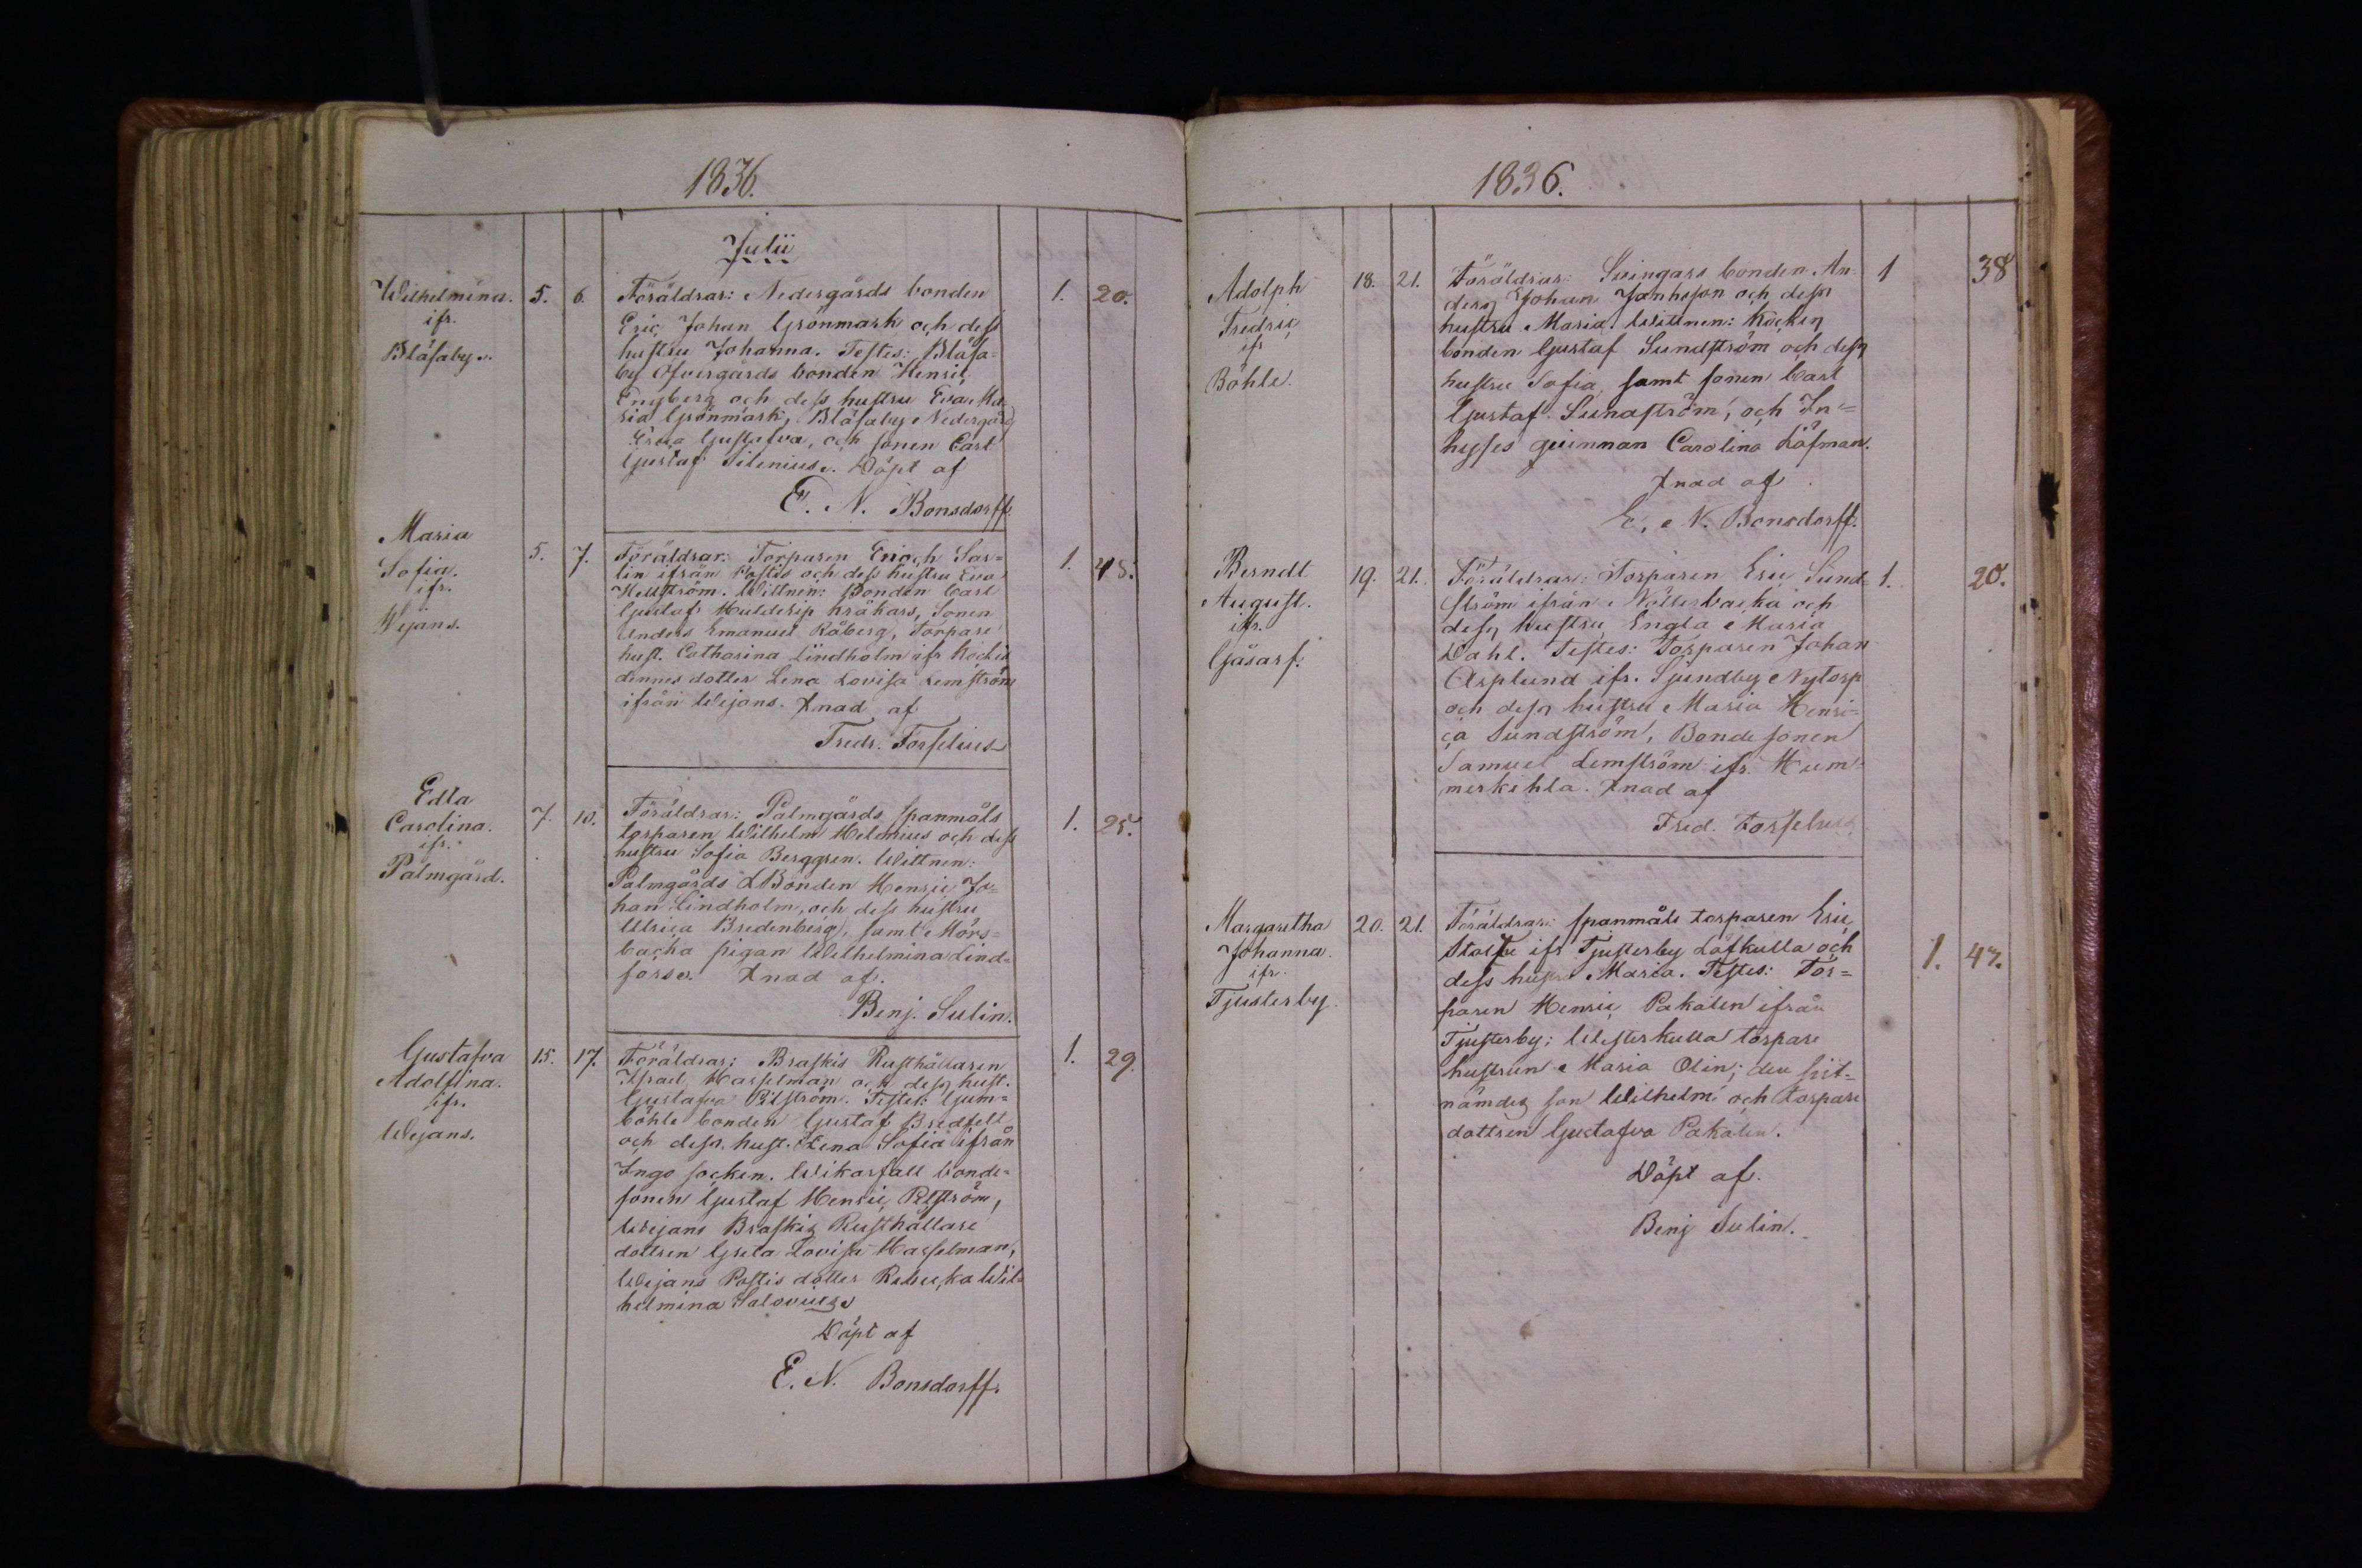 1836.
Julii
Wilhelmina. 5. 6. Föräldrar: Nedergårds bonden 1. 20.
ifr. Eric Johan Grönmark och dess
Blåsaby. hustru Johanna. Testes: Blåsa-
by Öfvergårds bonden Henric
Engberg och dess hustru Eva Ma-
ria Grönmark, Blåsaby Nedergård
Gustafva, och sonen Carl
Gustaf Silenius. Döpt af
E. N. Bonsdorff.
Maria
Sofia. 5. 7. Föräldrar: Torparen Enoch Sar- 1. 45.
ifr. lin ifrån Postis och dess hustru Eva
Wejans. Hellström. Wittnen: Bonden Carl
Gustaf kråkars, Sonen
Anders Emanuel Råberg, Torpare
hust. Catharina Lindholm ifr
dennes dotter Lena Lovisa Lemström
ifrån Wejans. Xnad af
Fredr. Forselius
Edla
Carolina. 7. 10. Föräldrar: Palmgårds spanmåls 1. 25.
ifr. torparen Wilhelm Helenius och dess
Palmgård. hustru Sofia Berggren. Wittnen:
Palmgårds Bonden Henric Jo-
han Lindholm, och dess hustru
Ulrica Bredenberg, samt Mörs-
backa pigan Wilhelmina Lind-
fors. Xnad af.
Benj. Sulin.
Gustafva 15. 17. Föräldrar: Braskis Rusthållaren 1. 29.
Adolfina. Israel Hasselman och dess hust.
ifr. Gustafva Pilström. Testes: Gum-
Wejans. böhle bonden Gustaf Bredfelt
och dess hust. Lena Sofia ifrån
Ingo socken. Wikarfall bonde-
sonen Gustaf Henric Pilström,
Wejans Braskis Rusthållare
dottren Greta Lovisa Hasselman,
Wejans Postis dotter Rebecka Wil-
helmina
Döpt af
E. N. Bonsdorff.
1836.
Adolph 18. 21. Föräldrar: Svingars bonden An- 1 38
Fredric ders Johan Janhsson och dess
ifr hustru Maria. Wittnen: Köckis
Böhle. bonden Gustaf Sundström och dess
hustru Sofia, samt sonen Carl
Gustaf Sundström, och In-
hyses quinnan Carolina Löfman.
Xnad af
E. N. Bonsdorff.
Berndt 19. 21. Föräldrar: Torparen Eric Sund- 1. 20.
August. ström ifrån och
ifr. dess hustru Engla Maria
Gåsarf. Dahl. Testes: Torparen Johan
Asplund ifr. Sjundby Nytorp
och dess hustru Maria Henri-
ca Sundström, Bonde sonen
Samuel Lemström ifr. Hum-
merkihla. Xnad af
Fred. Forselius
Margaretha 20. 21. Föräldrar: spanmåls torparen Eric
Johanna. Stolpe ifr Tjusterby Löfkulla och 1. 47.
ifr. dess hustru Maria. Testes: Tor-
Tjusterby. paren Henric Pakalen ifrån
Tjusterby; Westerkulla torpare
hustrun Maria Olin; den sist-
nämdes son Wilhelm och torpare
dottren Gustafva Pakalen.
Döpt af.
Benj Sulin.